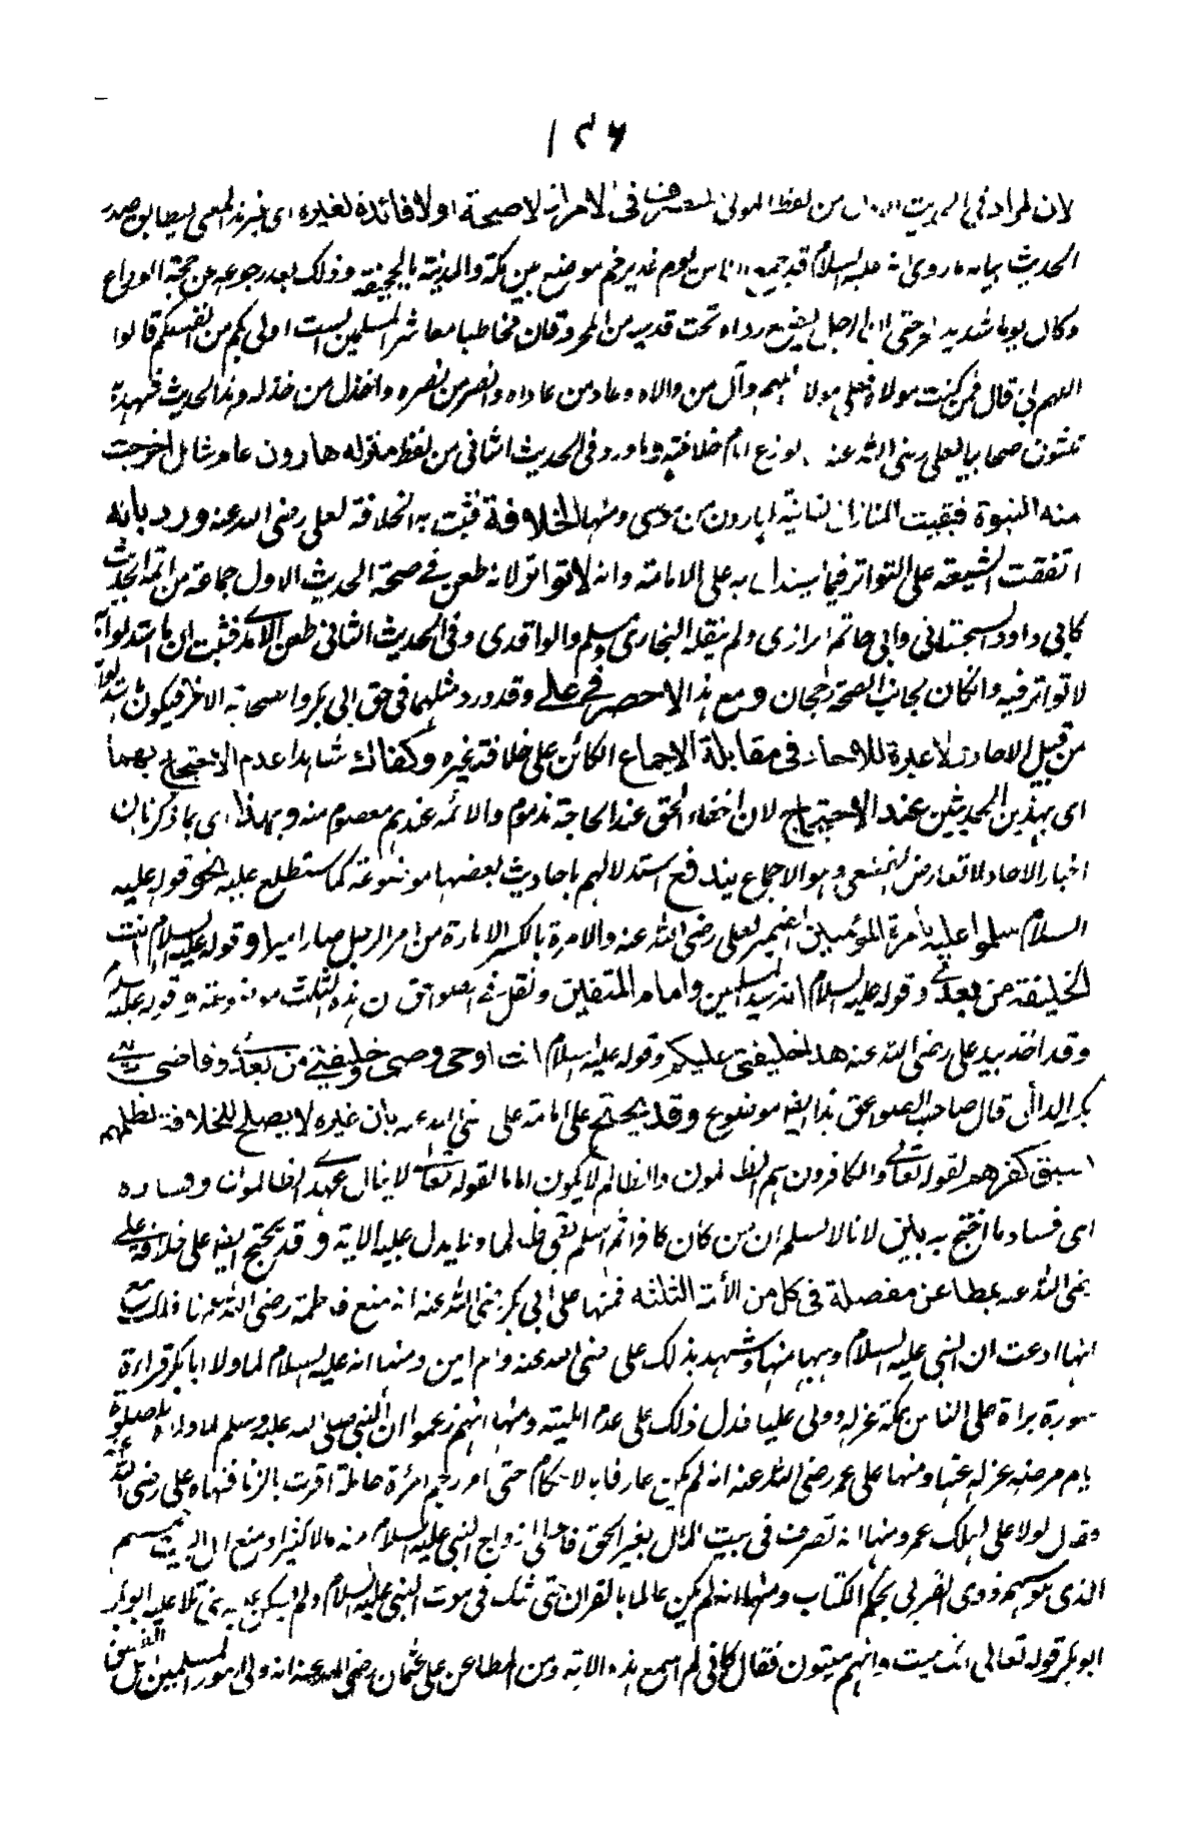 ١٣٦
لان المراد في الحديث الاول من لفظ المولى المتصرف في الامر اذ لا صحة او لا فائدة لغيره اي غير هذا المعنى ليطابق صدر
الحديث بيانه ما روى انه عليه السلام قد جمع الناس يوم غدير خم موضع بين مكة والمدينة بالجحفة وذلك بعد رجوعه عن حجة الوداع
وكان يوما شديد الحر حتى ان الرجل ليضع رداءه تحت قدميه من الحر وقال مخاطبا معاشر المسلمين الست اولى بكم من انفسكم قالوا
اللهم بلى قال فمن كنت مولاه فعلي مولاه اللهم وال من والاه وعاد من عاداه وانصر من نصره واخذل من خذله وهذا الحديث شهد به
ثلثون صحابيا لعلي رضي الله عنه لما نوزع ايام خلافته وما ورد في الحديث الثاني من لفظ منزلة هارون عام شامل اخرجت
منه النبوة فبقيت المنازل الثانية لهارون من موسى ومنها الخلافة فثبت به الخلافة لعلي رضي الله عنه ورد بانه
اتفقت الشيعة على التواتر فيما يستدل به على الامامة وانه لا تواتر لانه طعن في صحة الحديث الاول جماعة من ائمة الحديث
كابي داود السجستاني وابي حاتم الرازي ولم ينقله البخاري ومسلم والواقدي وفي الحديث الثاني طعن الآمدي فثبت ان ما استدلوا به
لا تواتر فيه وان كان بجانب الصحة رجحان ومع هذا لا حصر في علي وقد ورد مثلهما في حق ابي بكر والصحابة الاخر فيكون ما استدلوا به
من قبيل الاحاد ولا عبرة للاحاد في مقابلة الاجماع الكائن على خلافة غيره وكفاك شاهدا عدم الاحتجاج بهما
اي بهذين الحديثين عند الاحتجاج لان اخفاء الحق عند الحاجة مذموم والائمة عندهم معصوم منه وبهذا اي بما ذكرنا بان
اخبار الاحاد لا تعارض القطعي وهو الاجماع يندفع استدلالهم باحاديث بعضها موضوعة كما ستطلع عليه نحو قوله عليه
السلام سلموا عليه بامرة المؤمنين الضمير لعلي رضي الله عنه والامرة بالكسر الامارة من امر الرجل صار اميرا وقوله عليه السلام انت
الخليفة من بعدي وقوله عليه السلام انه سيد المسلمين وامام المتقين ونقل في الصواعق ان هذه الثلث موضوعة وقوله عليه السلام
وقد اخذ بيد علي رضي الله عنه هذا خليفتي عليكم وقوله عليه السلام انت اخي ووصيي وخليفتي من بعدي وقاضي ديني
بكسر الدال قال صاحب الصواعق هذا ايضا موضوع وقد يحتج على امامة علي رضي الله عنه بان غيره لا يصلح للخلافة لظلمهم
لسبق كفرهم لقوله تعالى والكافرون هم الظالمون والظالم لا يكون اماما لقوله تعالى لا ينال عهدي الظالمون وفساده
اي فساد ما احتج به بين لانا لا نسلم ان من كان كافرا ثم اسلم بقي ظالما وما يدل عليه الآية وقد يحتج ايضا على خلافة علي
رضي الله عنه بمطاعن مفصلة في كل من الائمة الثلثة فمنها على ابي بكر رضي الله عنه انه منع فاطمة رضي الله عنها فدك مع
انها ادعت ان النبي عليه السلام وهبها منها وشهد بذلك علي رضي الله عنه وام ايمن ومنها انه عليه السلام لما ولا ابا بكر قراءة
سورة براءة على الناس بمكة عزله وولى عليا فدل ذلك على عدم اهليته ومنها انهم زعموا ان النبي صلى الله عليه وسلم لما ولاه بالصلوة
ايام مرضه عزله عنها ومنها على عمر رضي الله عنه انه لم يكن عارفا بالاحكام حتى امر برجم امرأة حاملة اقرت بالزنا فنهاه علي رضي الله عنه
وقال لولا علي لهلك عمر ومنها انه تصرف في بيت المال بغير الحق فاعطى ازواج النبي عليه السلام منه مالا كثيرا ومنع اهل البيت خمسهم
الذي هو سهم ذوي القربى بحكم الكتاب ومنها انه لم يكن عالما بالقران حتى شك في موت النبي عليه السلام ولم يسكن به حتى تلا عليه ابو بكر
ابو بكر قوله تعالى انك ميت وانهم ميتون فقال كاني لم اسمع هذه الآية ومن المطاعن على عثمان رضي الله عنه انه ولى امور المسلمين اهل الفسق